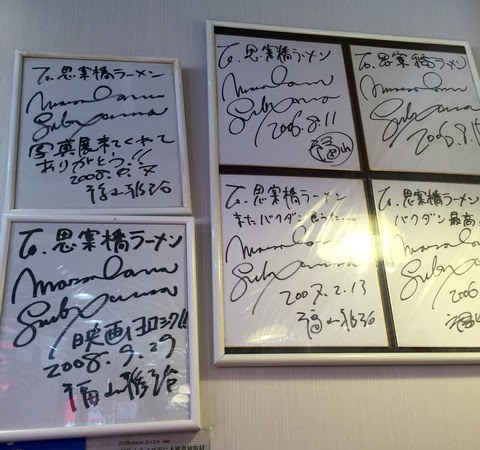 To.思案橋ラーメン
Masaharu
Fukuyama
写真展来てくれて
ありがとう!!
福山雅治
To.思案橋ラーメン
Masaharu
Fukuyama
映画ヨロシク!!
2008.9.29
福山雅治
To.思案橋ラーメン
Masaharu
Fukuyama
2006.8.11
福山
To.思案橋ラーメン
Masaharu
Fukuyama
To.思案橋ラーメン
またバクダン
Masaharu
Fukuyama
2007.2.13
福山雅治
To.思案橋ラーメン
バクダン最高
Masaharu
Fukuyama
2006
福山